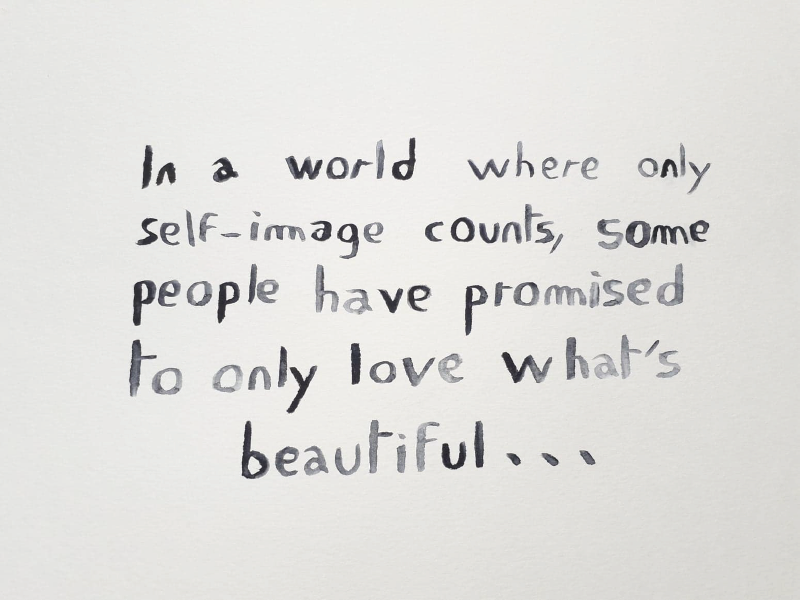 In a world where only
self-image counts, some
people have promised
to only love what's
beautiful...